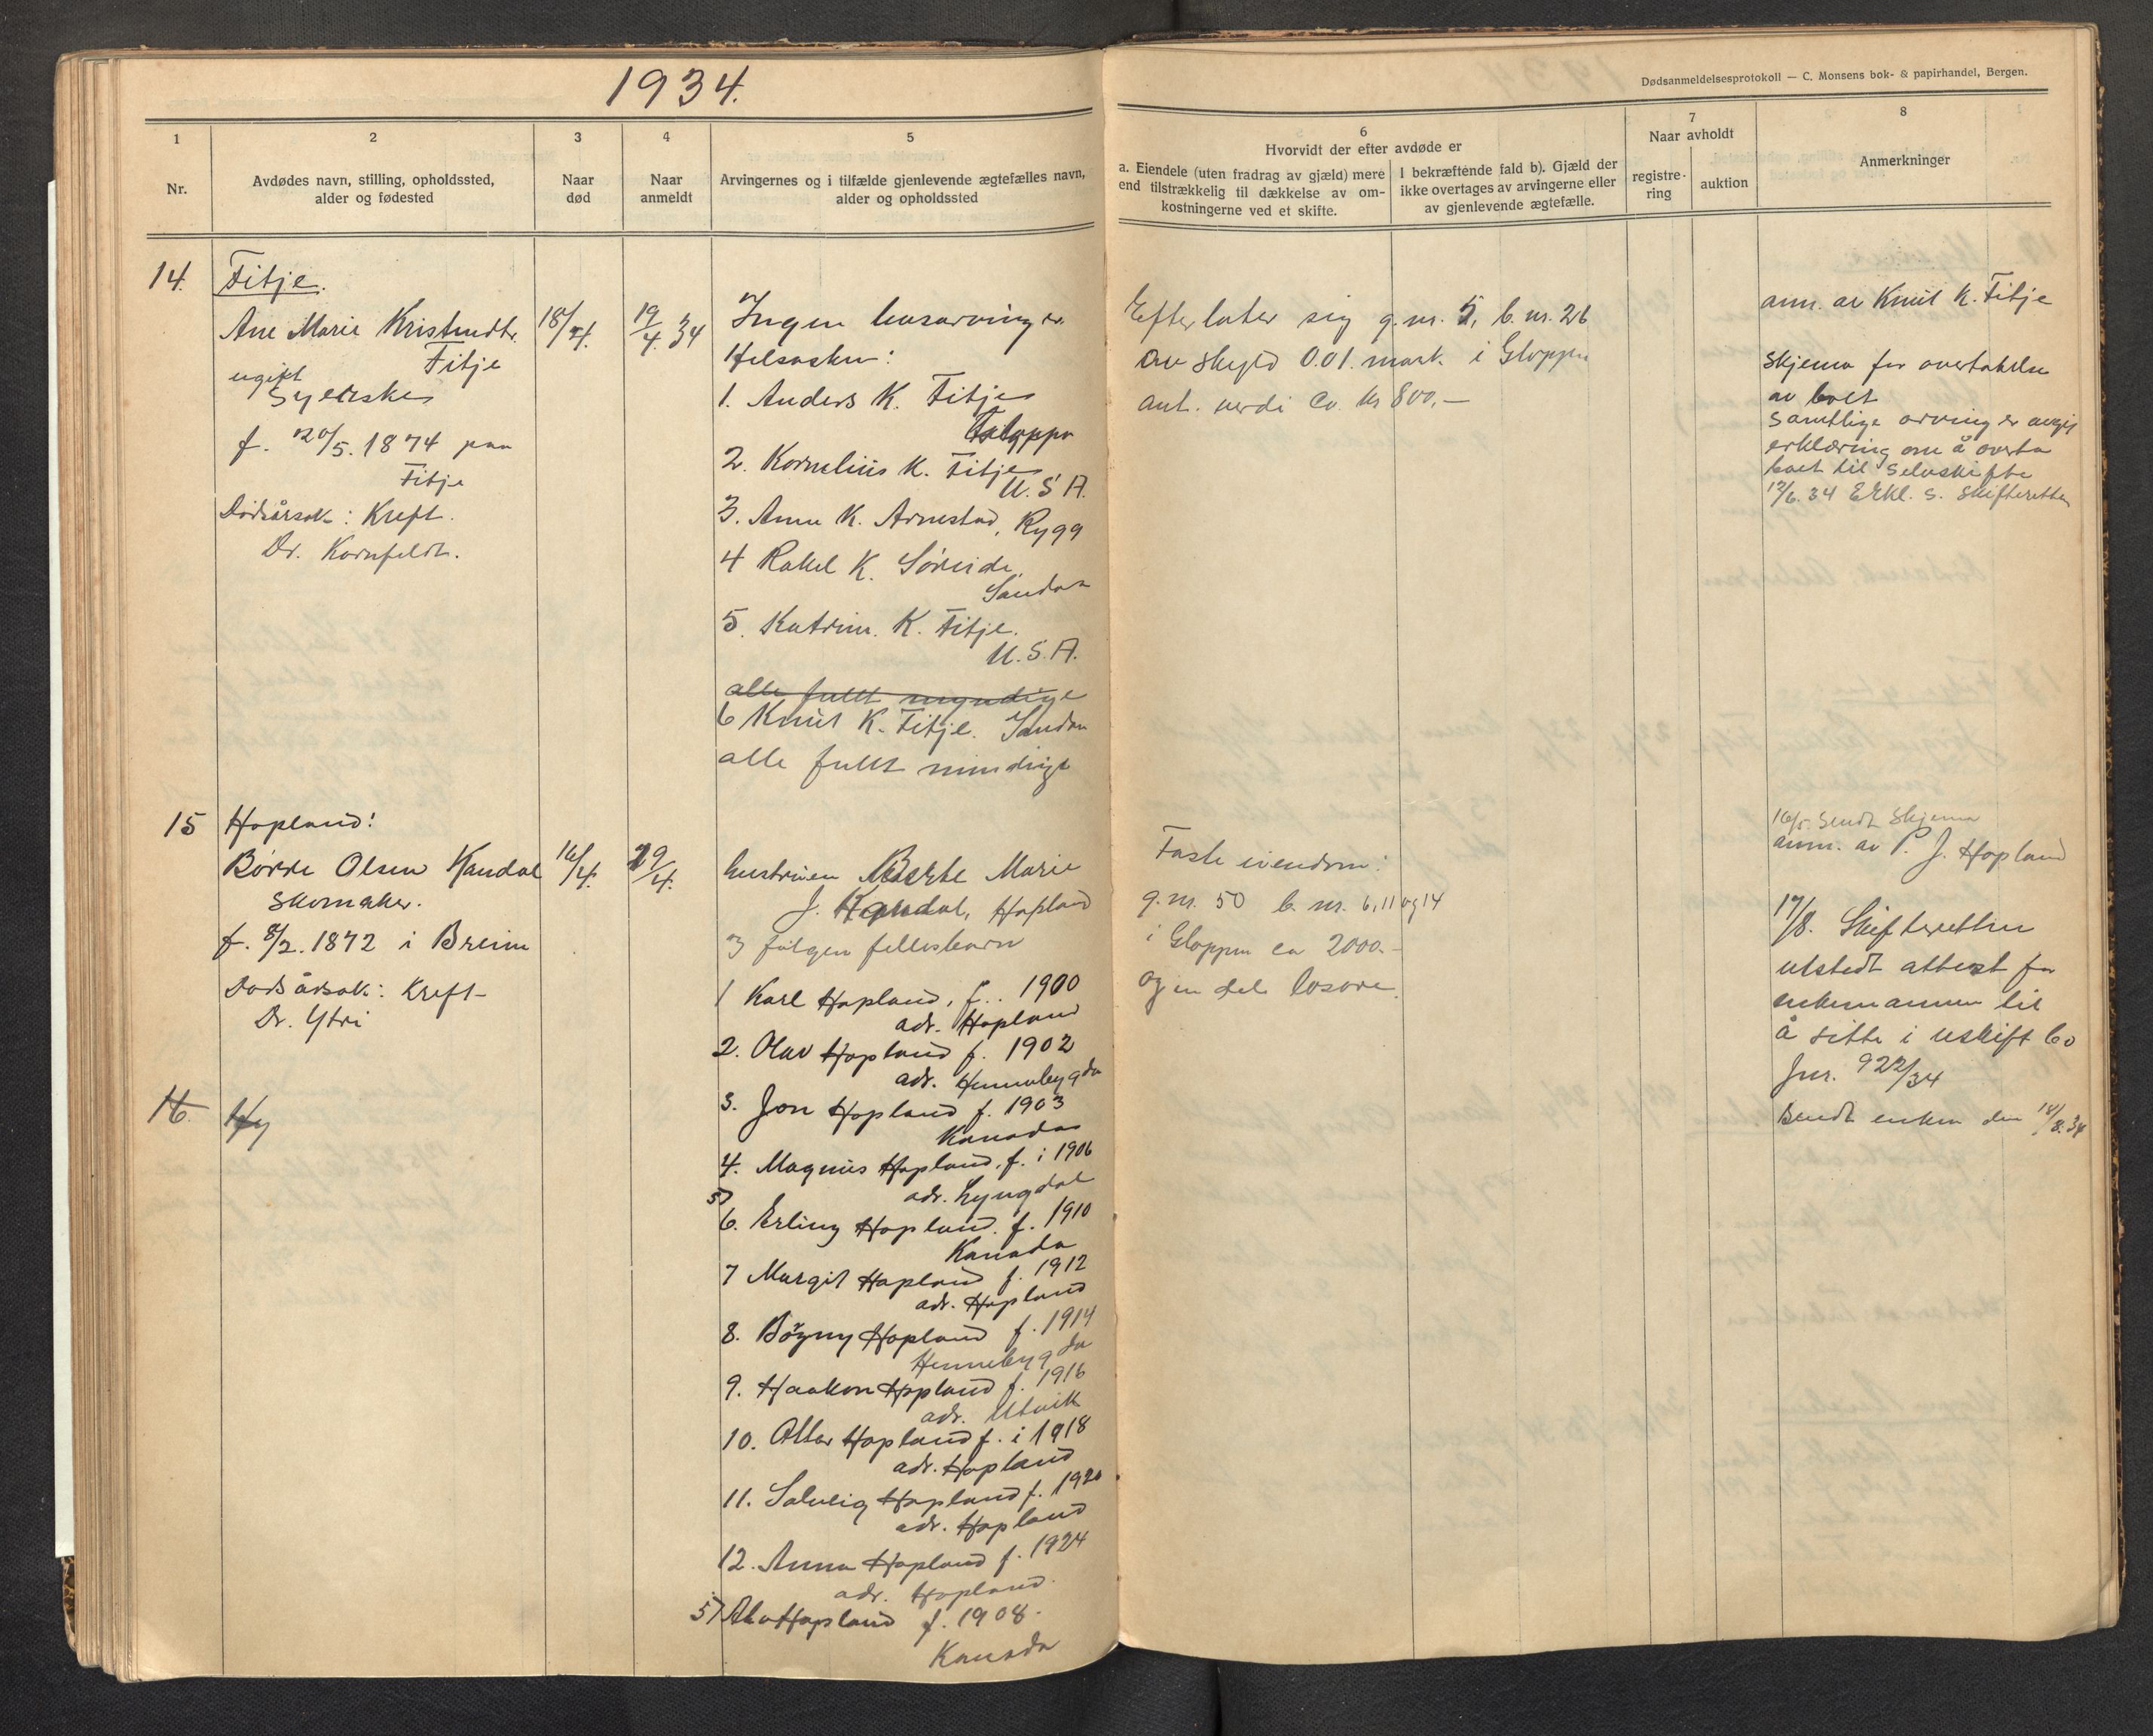 1934.
1
2
3
4
5
Nr.
Avdødes navn, stilling, opholdssted,
alder og fødested
Naar
død
Naar
anmeldt
Arvingernes og i tilfælde gjenlevende ægtefælles navn,
alder og opholdssted
14.
Fitje.
Ane Marie Kristendtr.
Fitje
ugift
Syerske
f. 20/5. 1874 paa
Fitje
Dødsårsak: Kreft.
Dr. Kornfeldt.
18/4.
19/4. 34
Ingen livsarvinger.
Helsøsken:
1. Anders K. Fitje
Gloppen
2. Kornelius K. Fitje
U.S.A.
3. Anne K. Arnestad, Rygg
4 Rakel K. Søreide,
Sandane
5. Katrine K. Fitje.
U.S.A.
alle fullt myndige
6 Knut K. Fitje. Sandane
alle fullt mindrige
15
Hopland:
Børre Olsen Kandal
Skomaker.
f. 8/2. 1872 i Breim
Dødsårsak: Kreft
Dr. Ytri
16/4.
29/4.
hustruen Berte Marie
J. Kandal, Hopland
og følgen fellesbarn
1 Karl Hopland, f. 1900
adr. Hopland
2. Olav Hopland f. 1902
adr. Hennebygda
3. Jon Hopland f. 1903
Kanada
4. Magnus Hopland, f. i 1906
adr. Lyngdal
5)
6. Erling Hopland. f. 1910
Kanada
7 Margit Hopland f. 1912
adr. Hopland
8. Børgny Hopland f. 1914
Hennebygda
9. Haakon Hopland f. 1916
adr. Utvik
10. Ottar Hopland f. i 1918
adr. Hopland
11. Solveig Hopland f. 1920
adr. Hopland
12. Anna Hopland f. 1924
adr. Hopland.
5) Hopland f. 1908.
Kanada
16.
Hy
Dødsanmeldelsesprotokoll — C. Monsens bok- & papirhandel, Bergen.
6
Hvorvidt der efter avdøde er
a. Eiendele (uten fradrag av gjæld) mere
end tilstrækkelig til dækkelse av om-
kostningerne ved et skifte.
I bekræftende fald b). Gjæld der
ikke overtages av arvingerne eller
av gjenlevende ægtefælle.
7
Naar avholdt
registre-
ring
auktion
8
Anmerkninger
Efterlater sig g.nr. 5, b.nr. 26
av skyld 0.01. mark i Gloppen
ant. verdi ca. kr 800,-
anm. av Knut K. Fitje
Skjema for overtakelse
av boet
Samtlige arvinger avgij
erklæring om å overta
boet til selvskifte
12/6. 34 Erkl. s. Skifteretten
Faste eiendom:
g.nr. 50 b. nr. 6, 11 og 14
i Gloppen ca 2000.-
og en del løsøre.
16/5. sendt skjema
anm. av P. J. Hopland
17/8. Skifteretten
utstedt attest for
enkemannen til
å sitte i uskift bo
Jnr. 922/34
Sendt enken den 18/8. 34